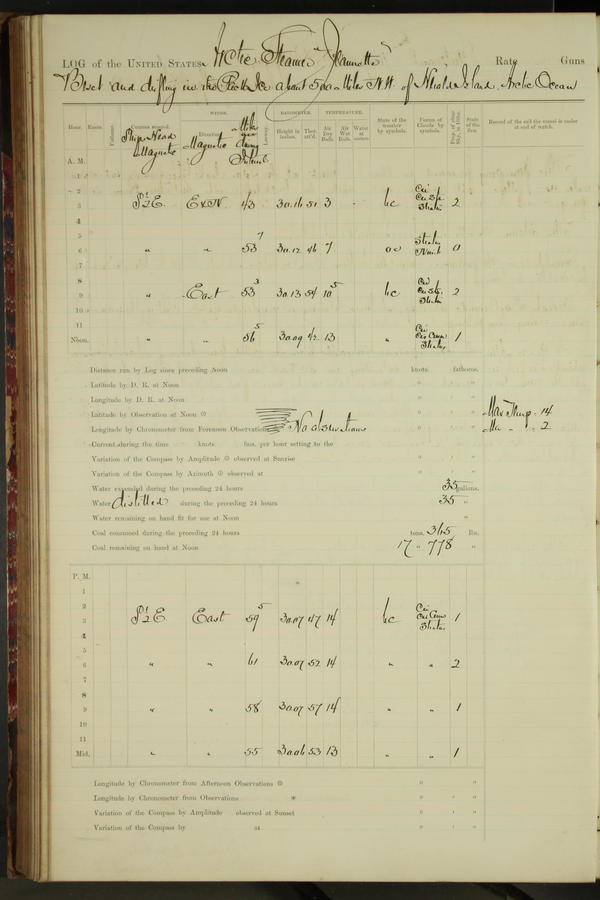 LOG of the UNITED STATES Arctic Steamer "Jeannette" Rate Guns
Beset and drifting in the Pack Ice about 500 Miles N.W. of Herald Island, Arctic Ocean
WINDS. BAROMETER. TEMPERATURE.
Hour. Knots. Fathoms. Courses steered. Ship's Head Magnetic Direction Magnetic Leeway. Height in inches. Ther. att'd. Air Dry Bulb. Air Wet Bulb. Water at surface. State of the weather by symbols. Forms of Clouds by symbols. Prop. of clear Sky, in 10ths. State of the Sea. Record of the sail the vessel is under at end of watch.
A. M.
1
2
3 E 43 30.16 51 3 bc Cu 2
4
5
6 " " 53 7 30.12 46 7 Strat. 0
7
8
9 " East 53 3 30.13 54 10 5 bc 2
10
11
Noon. " " 56 5 30.09 42 13 " 1
Distance run by Log since preceding Noon knots fathoms.
Latitude by D. R. at Noon ° ' "
Longitude by D. R. at Noon ° ' "
Latitude by Observation at Noon ° ' " 14
Longitude by Chronometer from Forenoon Observations No observations ° ' " 2
Current during the time knots fms. per hour setting to the
Variation of the Compass by Amplitude observed at Sunrise ° ' "
Variation of the Compass by Azimuth observed at ° ' "
Water expended during the preceding 24 hours 35 gallons.
Water distilled during the preceding 24 hours 35 "
Water remaining on hand fit for use at Noon "
Coal consumed during the preceding 24 hours tons, 365 lbs.
Coal remaining on hand at Noon 17 " 778 "
P. M.
1
2
3 E. East 59 5 30.07 47 14 bc 1
4
5
6 " " 61 30.07 52 14 " " 2
7
8
9 " " 58 30.07 57 14 " " 1
10
11
Mid. " " 55 30.06 53 13 " " 1
Longitude by Chronometer from Afternoon Observations ° "
Longitude by Chronometer from Observations * ° ' "
Variation of the Compass by Amplitude observed at Sunset ° ' "
Variation of the Compass by at ° ' "